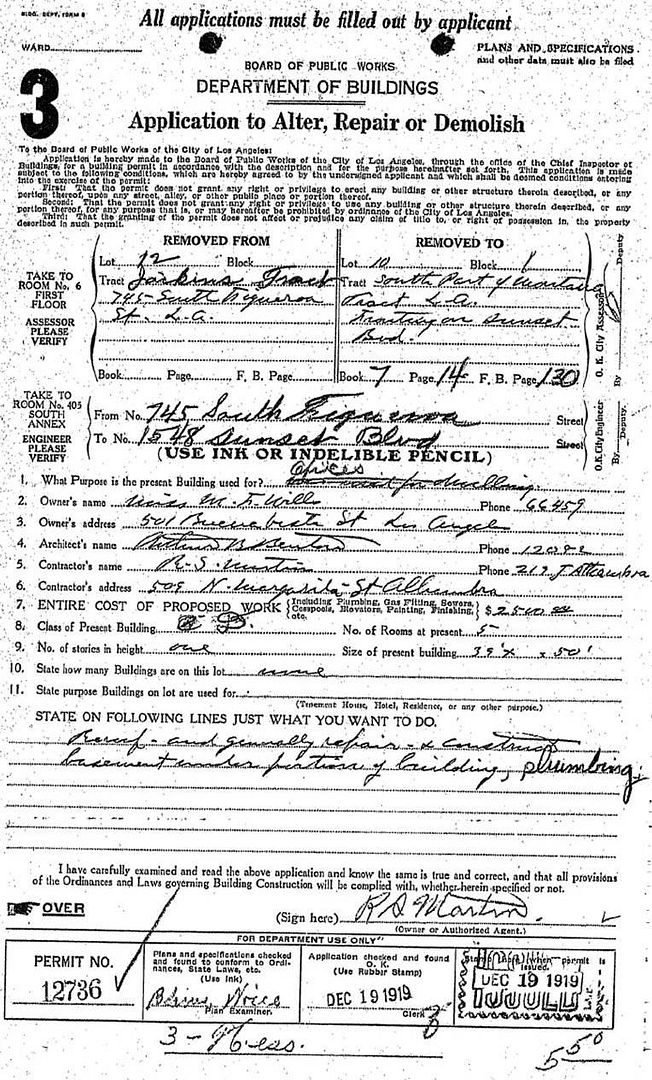 BLDG. DEPT. FORM 3
All applications must be filled out by applicant
WARD
PLANS AND SPECIFICATIONS
and other data must also be filed
BOARD OF PUBLIC WORKS
DEPARTMENT OF BUILDINGS
3
Application to Alter, Repair or Demolish
To the Board of Public Works of the City of Los Angeles:
Application is hereby made to the Board of Public Works of the City of Los Angeles, through the office of the Chief Inspector of
Buildings, for a building permit in accordance with the description and for the purpose hereinafter set forth. This application is made
subject to the following conditions, which are hereby agreed to by the undersigned applicant and which shall be deemed conditions entering
into the exercise of the permit:
First: That the permit does not grant any right or privilege to erect any building or other structure therein described, or any
portion thereof, upon any street, alley, or other public place or portion thereof.
Second: That the permit does not grant any right or privilege to use any building or other structure therein described, or any
portion thereof, for any purpose that is, or may hereafter be prohibited by ordinance of the City of Los Angeles.
Third: That the granting of the permit does not affect or prejudice any claim of title to, or right of possession in, the property
described in such permit.
REMOVED FROM
REMOVED TO
TAKE TO
ROOM No. 6
FIRST
FLOOR
ASSESSOR
PLEASE
VERIFY
Lot 12 Block
Tract Tract
745 South Figueroa
St. L.A.
Book Page F. B. Page
Lot 10 Block 1
Tract South Part of Montana
Tract L.A.
Fronting on Sunset
Bvd.
Book 7 Page 14 F. B. Page 130
O. K. City Assessor
By Deputy
TAKE TO
ROOM No. 405
SOUTH
ANNEX
ENGINEER
PLEASE
VERIFY
From No. 745 South Figueroa Street
To No. 1548 Sunset Blvd Street
O.K. City Engineer
By Deputy.
(USE INK OR INDELIBLE PENCIL)
1. What Purpose is the present Building used for? Offices for dwelling
2. Owner's name Miss M. E. Wills Phone 66459
3. Owner's address 501 St Los Angeles
4. Architect's name Arthur B Benton Phone
5. Contractor's name R. S. Martin Phone 217 J Alhambra
6. Contractor's address 509 N. Margarita St Alhambra
7. ENTIRE COST OF PROPOSED WORK {Including Plumbing, Gas Fitting, Sewers, Cesspools, Elevators, Painting, Finishing, etc.} $2500.00
8. Class of Present Building D. No. of Rooms at present 5
9. No. of stories in height one Size of present building 39' x 50'
10. State how many Buildings are on this lot none
11. State purpose Buildings on lot are used for
(Tenement House, Hotel, Residence, or any other purpose.)
STATE ON FOLLOWING LINES JUST WHAT YOU WANT TO DO.
Reroof - and generally repair - & construct
basement under portion of building, plumbing
I have carefully examined and read the above application and know the same is true and correct, and that all provisions
of the Ordinances and Laws governing Building Construction will be complied with, whether herein specified or not.
OVER
(Sign here) R S Martin
(Owner or Authorized Agent.)
FOR DEPARTMENT USE ONLY
PERMIT NO.
12736
Plans and specifications checked
and found to conform to Ordi-
nances, State Laws, etc.
(Use Ink)
Plan Examiner.
Application checked and found
O. K.
(Use Rubber Stamp)
DEC 19 1919
Clerk
Stamp here when permit is
issued.
DEC 19 1919
ISSUED
3 - Hess.
5 50